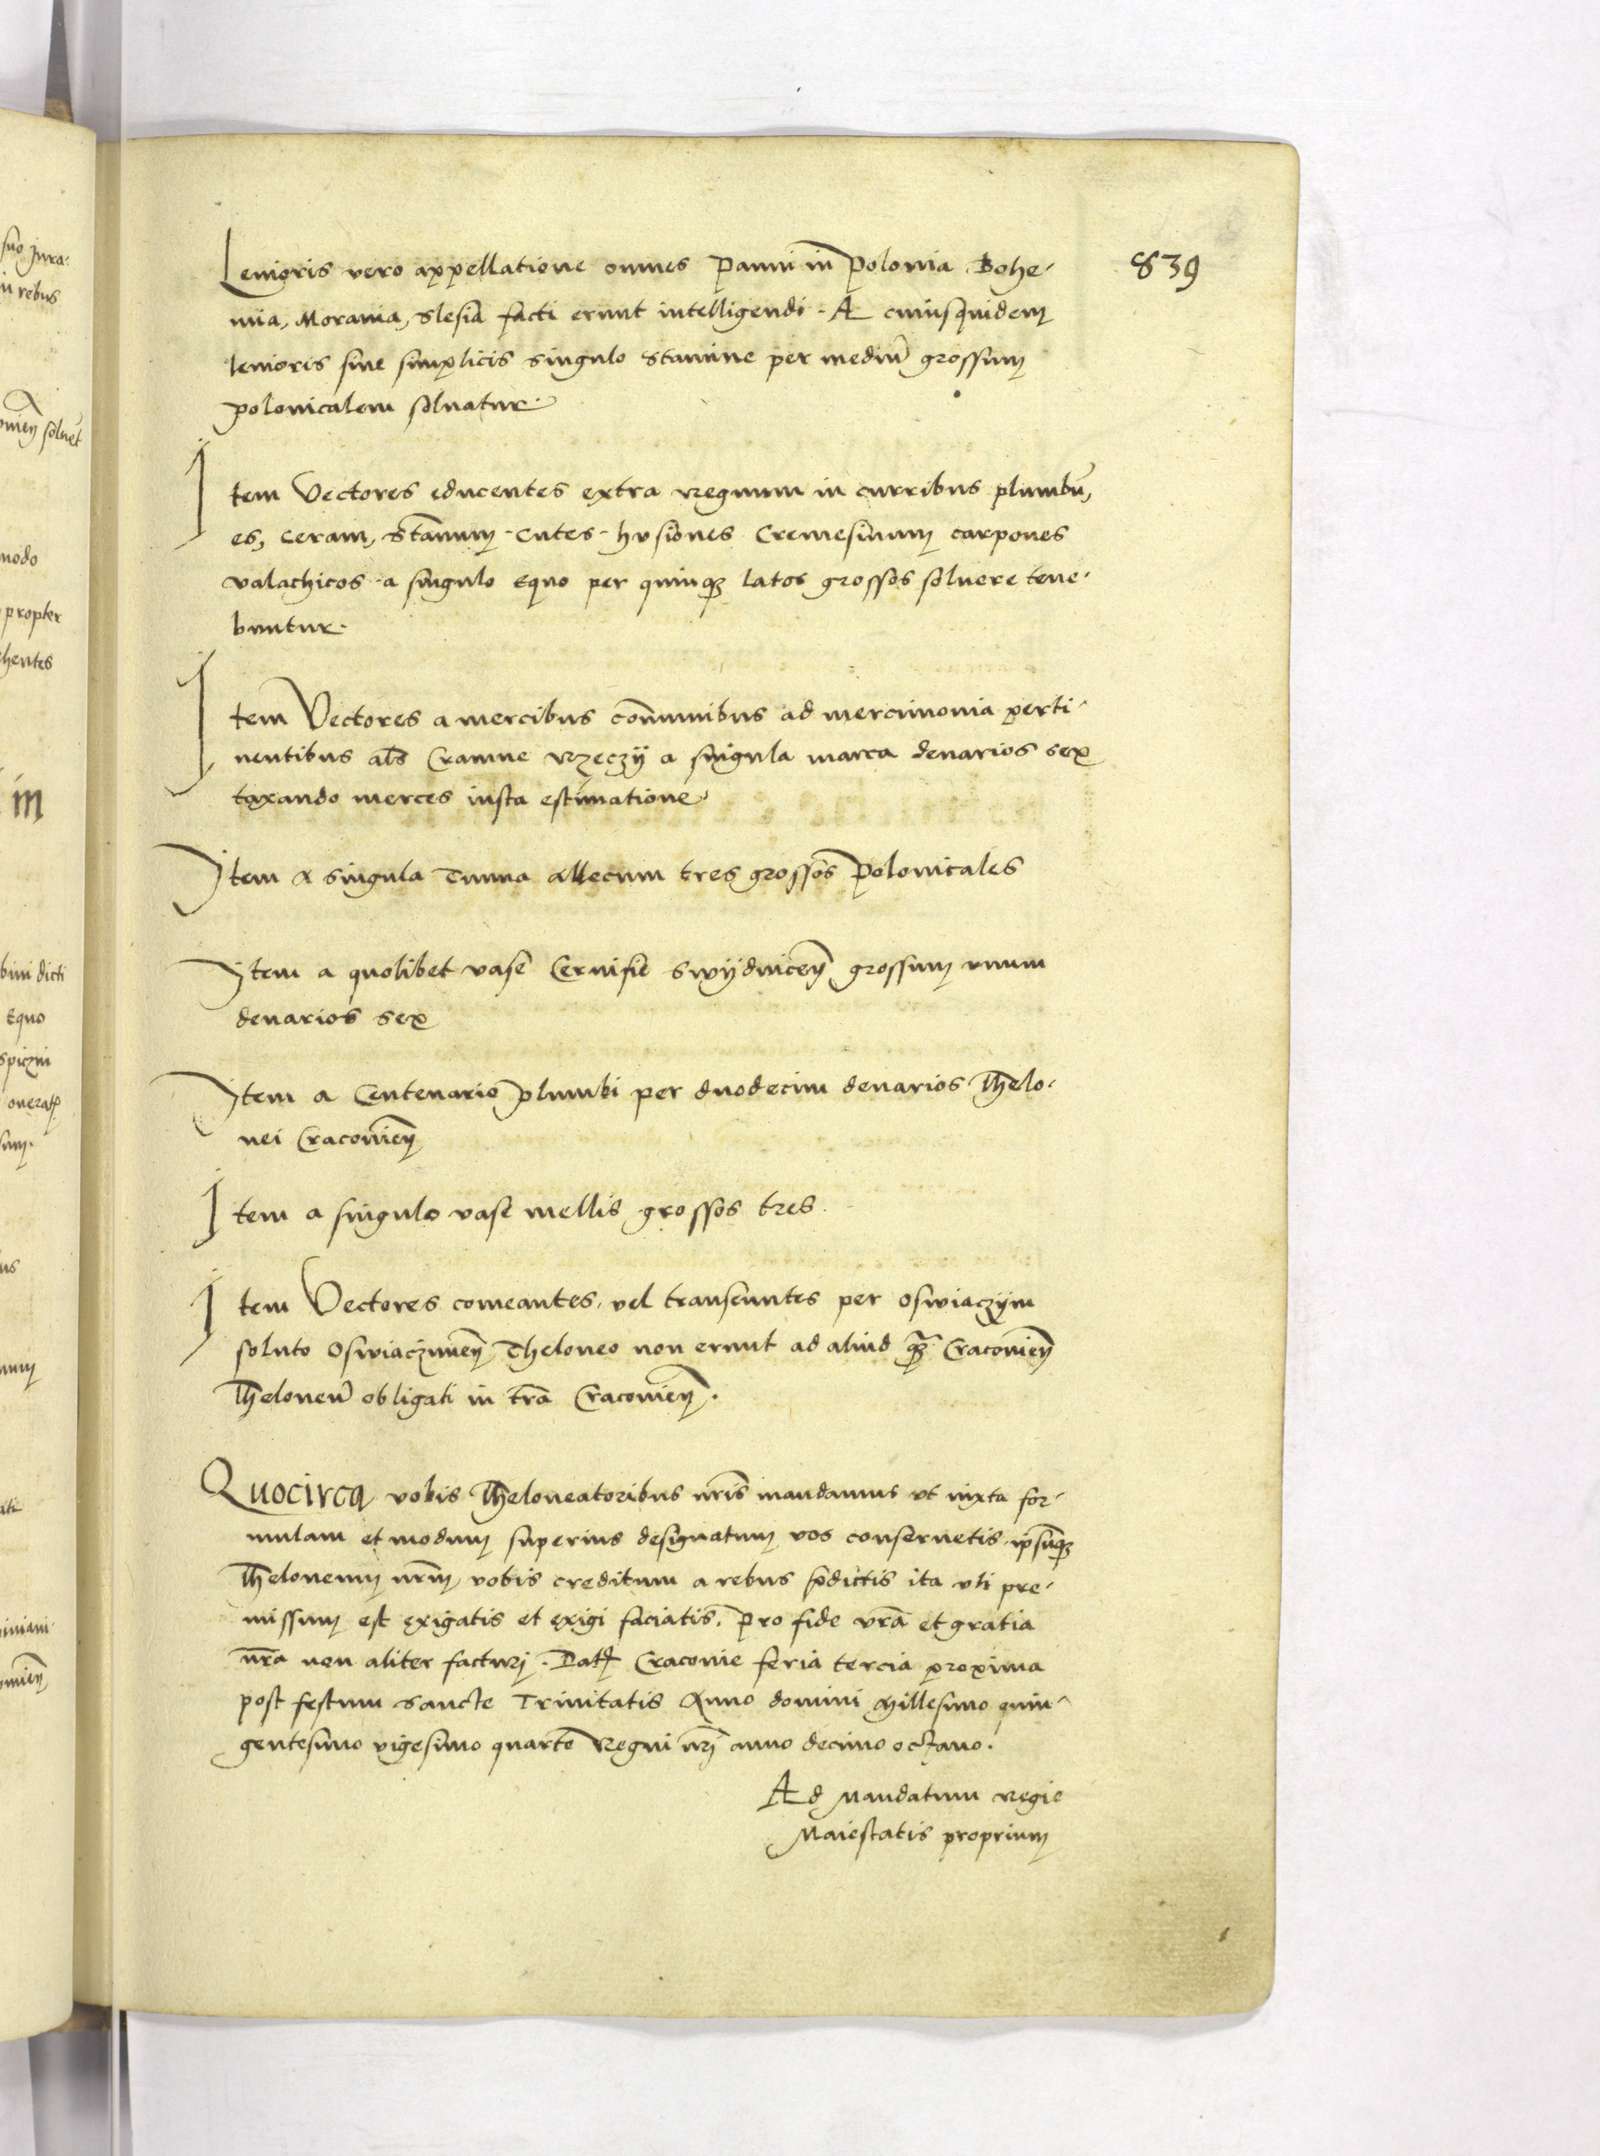 839
Leuioris vero appellatione omnes panni in polonia Bohe-
mia, Morauia, Slesia facti erunt intelligendi. A cuiusquidem
leuioris siue simplicis singulo stamine per mediū grossum
polonicalem soluatur.
Item Vectores educentes extra Regnum in curribus plumbū,
es, ceram, Stannum. Cutes. husiones Cremesinum carpones
valachicos. a singulo Equo per quinqȝ latos grossos soluere tene-
buntur.
Item Vectores a mercibus com̄unibus ad mercimonia perti-
nentibus al̄s Cramne Rzeczÿ a singula marca denarios sex
taxando merces iusta estimatione.
Item a singula Tunna allecum tres grossos polonicales
Item a quolibet vase Ceruisie Swÿdniceñ grossum vnum
denarios sex
Item a Centenario plumbi per duodecim denarios Thelo-
nei Cracouieñ
Item a singulo vase mellis grossos tres.
Item Vectores comeantes, vel transeuntes per Oswiaczym
soluto Oswiaczimeñ Theloneo non erunt ad aliud qȝ̄ Cracouieñ
Theloneū obligati in tr̄a Cracouieñ.
Quocirca vobis Theloneatoribus nr̄is mandamus vt iuxta for-
mulam et modum superius designatum vos conseruetis ip̄sumqȝ
Theloneum nr̄m vobis creditum a rebus p̄dictis ita vti pre-
missum est exigatis et exigi faciatis. pro fide vr̄a et gratia
nr̄a non aliter facturi. Dat̄ Cracouie feria tercia proxima
post festum Sancte Trinitatis Anno domini Millesimo quin-
gentesimo vigesimo quarto Regni nr̄i anno decimo octauo.
Ad Mandatum Regie
Maiestatis proprium